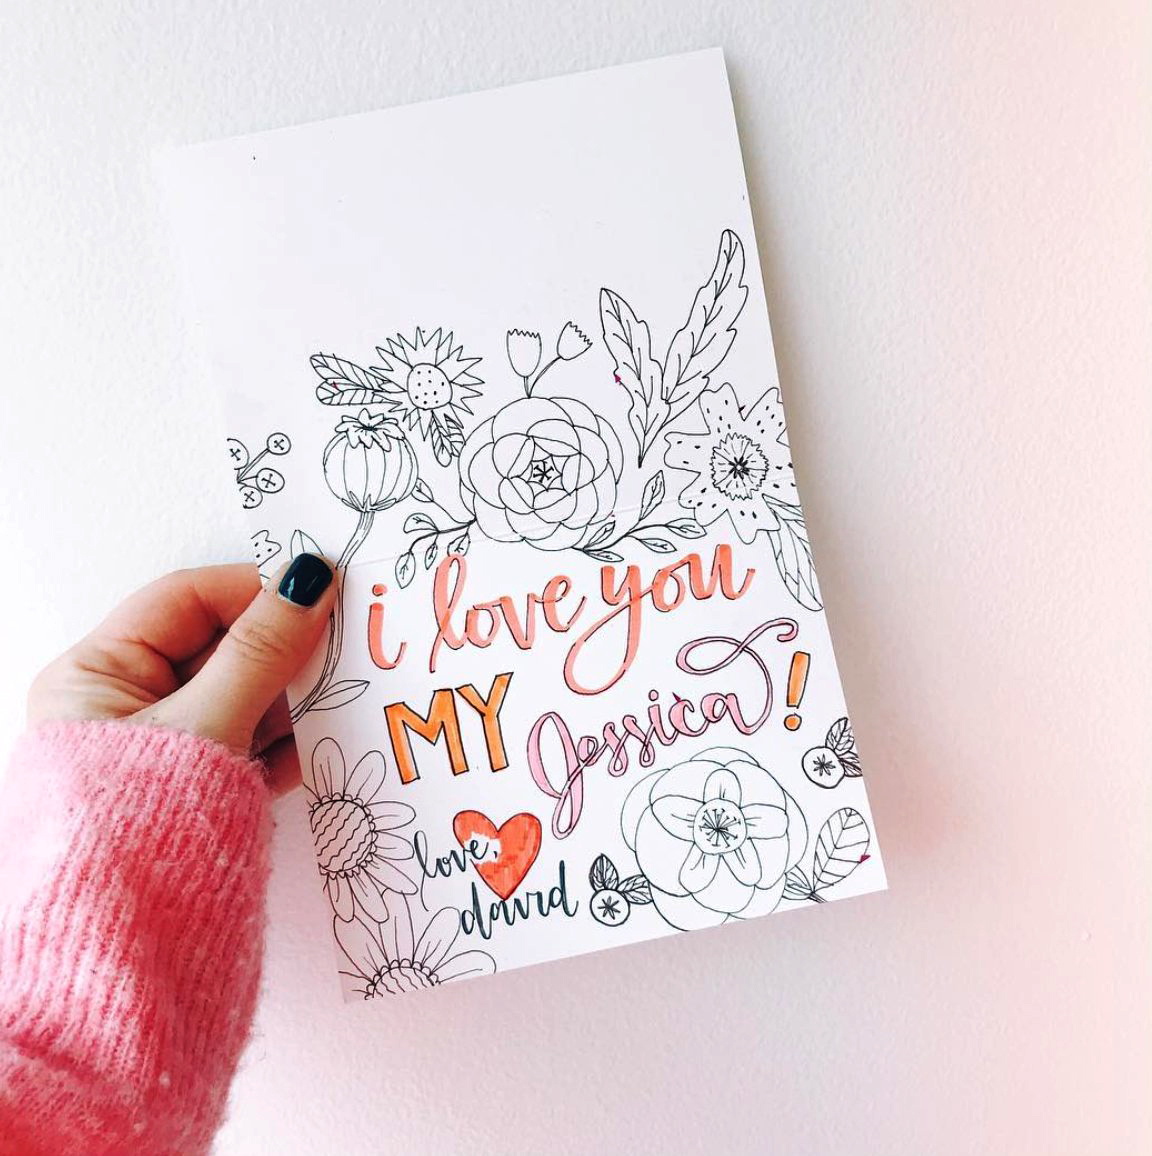 i love you
MY Jessica!
love,
david